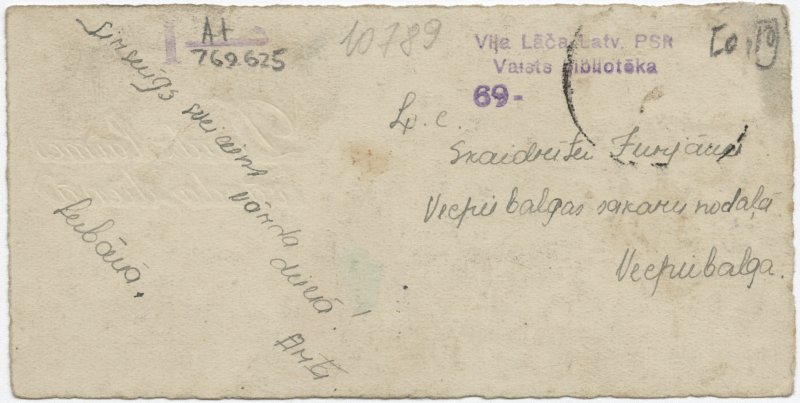 At
769625
10789
Viļa Lāča Latv. PSR
Valsts bibliotēka
69-
Sirsnīgs sveiciens vārda dienā!
Lubānā.
Ļ. c.
Skaidrītei
Vecpiebalgas sakaru nodaļā
Vecpiebalga.